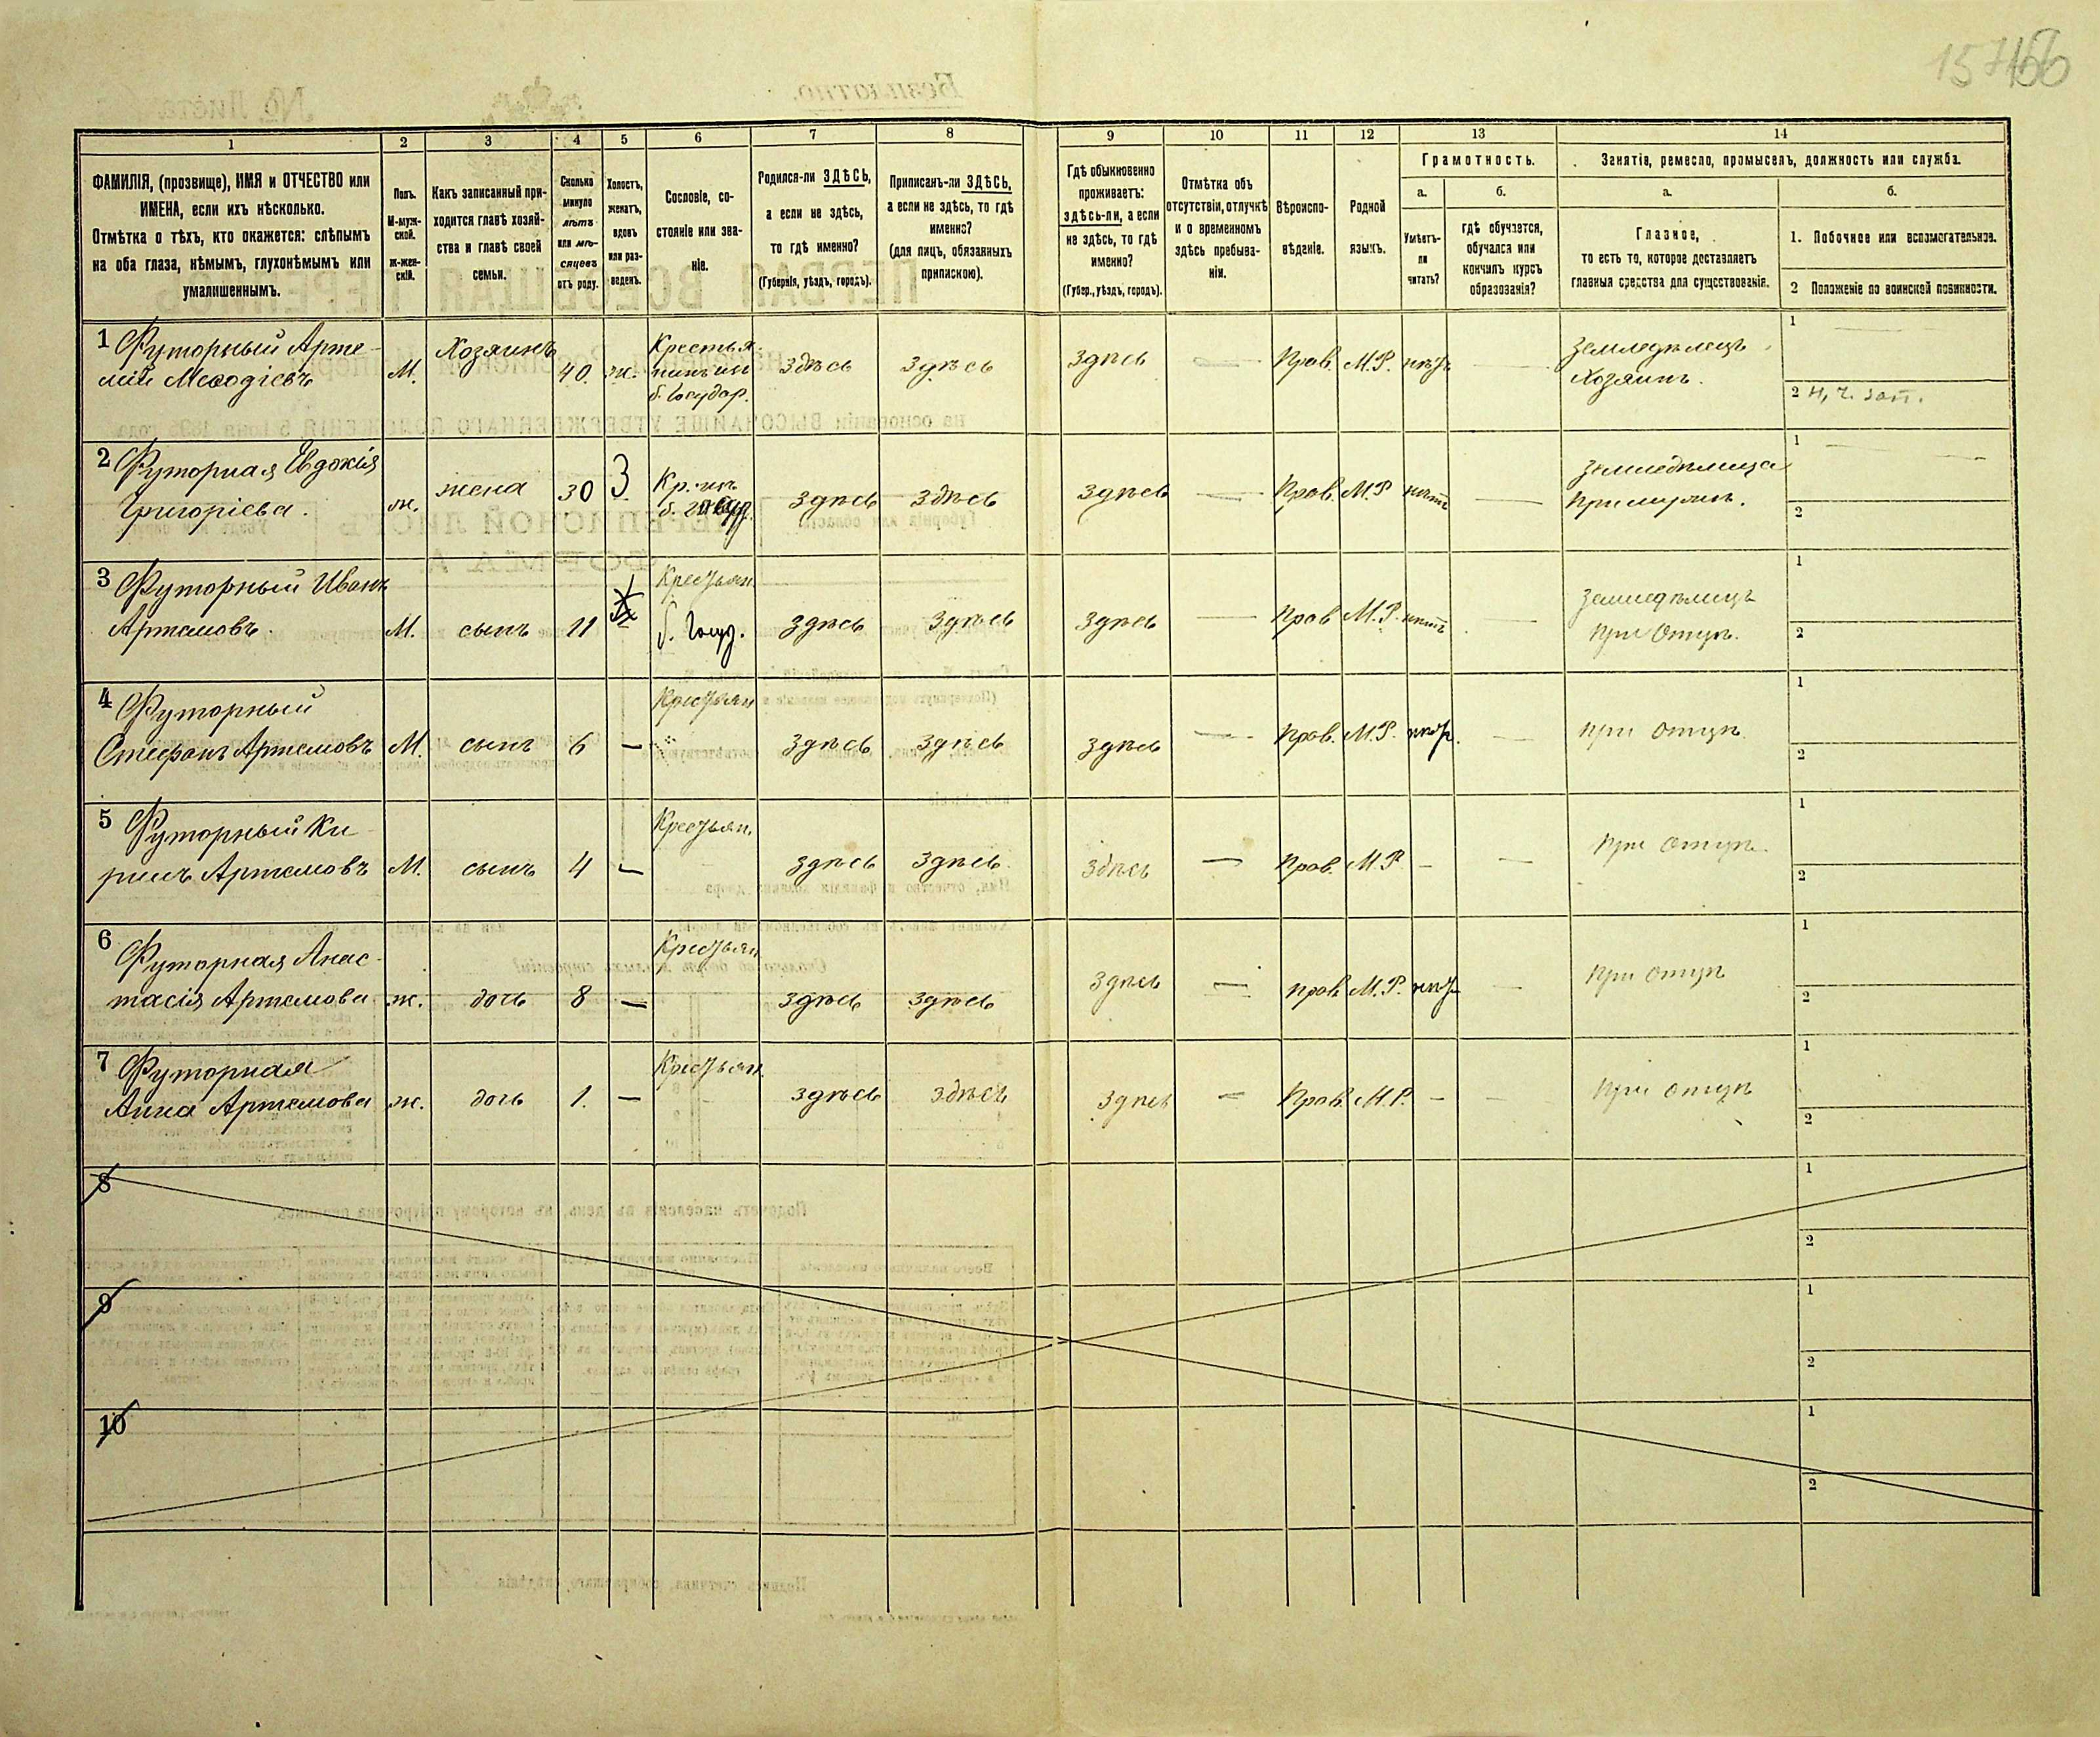 157 156
1 2 3 4 5 6 7 8 9 10 11 12 13 14
ФАМИЛІЯ, (прозвище), ИМЯ и ОТЧЕСТВО или
ИМЕНА, если ихъ нѣсколько.
Отмѣтка о тѣхъ, кто окажется: слѣпымъ
на оба глаза, нѣмымъ, глухонѣмымъ или
умалишеннымъ.
Полъ.
М-муж-
ской.
ж-жен-
скій.
Какъ записанный при-
ходится главѣ хозяй-
ства и главѣ своей
семьи.
Сколько
минуло
лѣтъ
или мѣ-
сяцевъ
отъ роду.
Холостъ,
женатъ,
вдовъ
или раз-
веденъ.
Сословіе, со-
стояніе или зва-
ніе.
Родился-ли ЗДѢСЬ,
а если не здѣсь,
то гдѣ именно?
(Губернія, уѣздъ, городъ).
Приписанъ-ли ЗДѢСЬ,
а если не здѣсь, то гдѣ
именно?
(для лицъ, обязанныхъ
припискою).
Гдѣ обыкновенно
проживаетъ:
здѣсь-ли, а если
не здѣсь, то гдѣ
именно?
(Губер., уѣздъ, городъ).
Отмѣтка объ
отсутствіи, отлучкѣ
и о временномъ
здѣсь пребыва-
ніи.
Вѣроиспо-
вѣданіе.
Родной
языкъ.
Грамотность.
а.
Умѣетъ-
ли
читать?
б.
гдѣ обучается,
обучался или
кончилъ курсъ
образованія?
Занятіе, ремесло, промыселъ, должность или служба.
а.
Главное,
то есть то, которое доставляетъ
главныя средства для существованія.
б.
1. Побочное или вспомогательное.
2 Положеніе по воинской повинности.
1 Футорный Арте-
мій Меѳодіевъ М. Хозяинъ 40 ж. Крестья-
нинъ изъ
б. Государ. здѣсь здѣсь здѣсь — Прав. М.Р. нѣтъ — Земледѣлецъ
Хозяинъ. 1 — 2 н, ч. зап.
2 Футорная Евдокія
Григоріева. ж. жена 30 З Кр. изъ
б. госуд. здѣсь здѣсь здѣсь — Прав. М.Р нѣтъ — Земледѣлица
При мужѣ. 1 — 2
3 Футорный Иванъ
Артемовъ. М. сынъ 11 Крестьян.
б. Госуд. здѣсь здѣсь здѣсь — Прав М.Р. нѣтъ — Земледѣлецъ
при Отцѣ. 1 2
4 Футорный
Стефанъ Артемовъ М. сынъ 6 — Крестьян
" здѣсь здѣсь здѣсь — Прав. М.Р. нѣт. — при отцѣ 1 2
5 Футорный Ки-
рилъ Артемовъ М. сынъ 4 — Крестьян. здѣсь здѣсь здѣсь — Прав. М.Р. — — При отцѣ 1 2
6 Футорная Анас-
тасія Артемова ж. дочь 8 — Крестьян здѣсь здѣсь здѣсь — прав М.Р. нѣт — при отцѣ 1 2
7 Футорная
Анна Артемова ж. дочь 1. — Крестьян. здѣсь здѣсь здѣсь — Прав. М.Р. — — при отцѣ 1 2
8 1 2
9 1 2
10 1 2